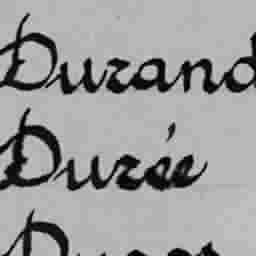 Durand
Durée